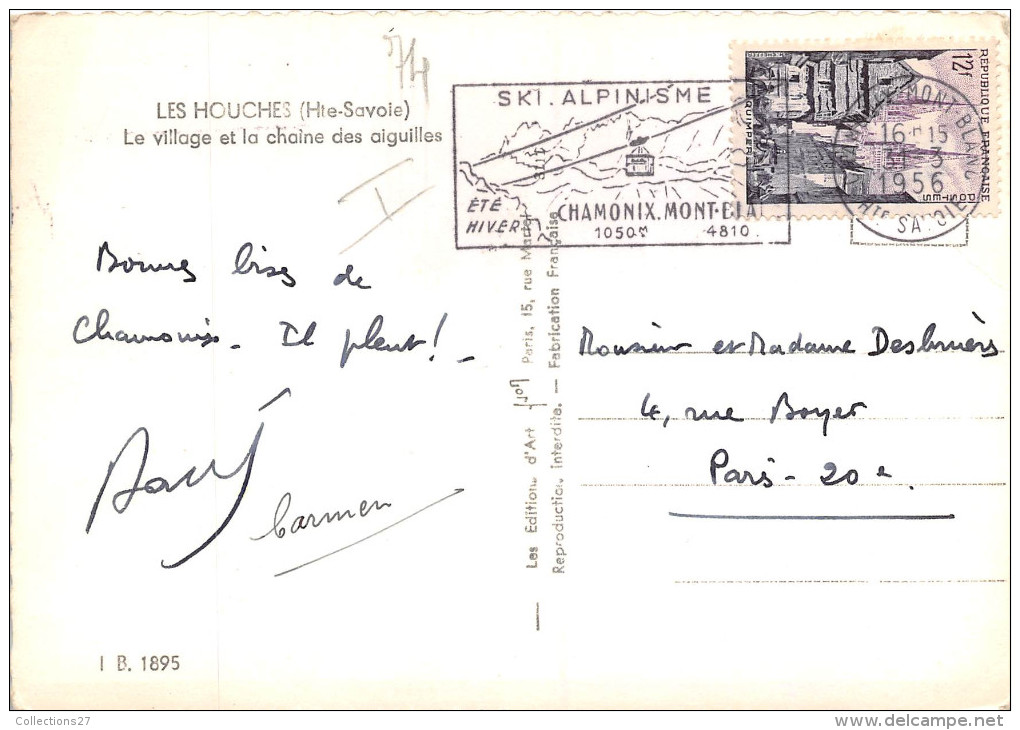 LES HOUCHES (Hte-Savoie)
Le village et la chaîne des aiguilles
SKI. ALPINISME
ÉTÉ
HIVER
CHAMONIX. MONT-BLAN
1050m 4810
RÉPUBLIQUE FRANÇAISE
12f
POSTES
QUIMPER
MONT BLANC
16H15
1956
HTE SAVOIE
Bonnes bises de
Chamonix - Il pleut! -
Carmen
Monsieur et Madame Desbruères
4, rue Boyer
Paris - 20e.
Les Editions d'Art Paris, 15, rue Martel
Reproduction interdite. — Fabrication Française
I B. 1895
Collections27
delcampe.net